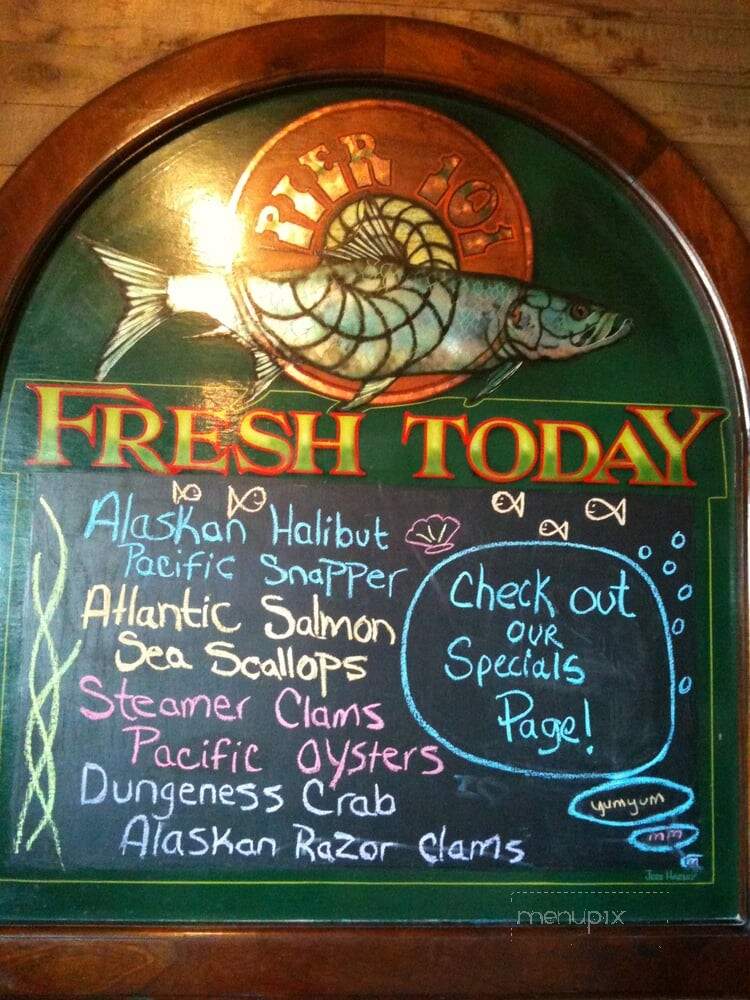 PIER 101
FRESH TODAY
Alaskan Halibut
Pacific Snapper
Atlantic Salmon
Sea Scallops
Steamer Clams
Pacific Oysters
Dungeness Crab
Alaskan Razor Clams
Check out
OUR
Specials
Page!
yumyum
mm
menupix